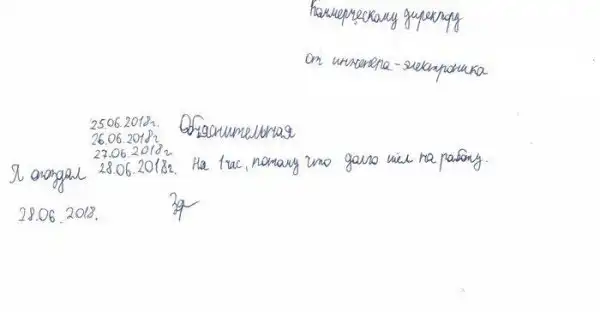 Коммерческому директору
от инженера-электроника
Объяснительная
25.06.2018г.
26.06.2018г.
27.06.2018г.
Я опоздал 28.06.2018г. на 1 час, потому что долго шёл на работу.
28.06.2018.